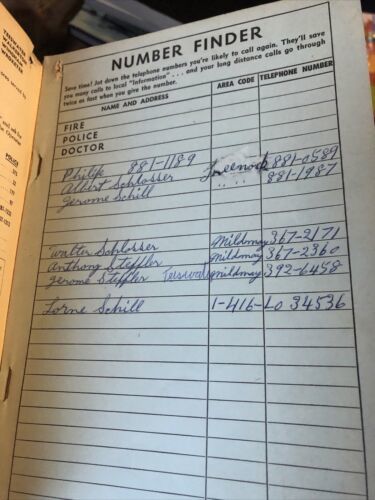 NUMBER FINDER
Save time! Jot down the telephone numbers you're likely to call again. They'll save
you many calls to local "Information" . . . and your long distance calls go through
twice as fast when you give the number.
NAME AND ADDRESS AREA CODE TELEPHONE NUMBER
FIRE
POLICE
DOCTOR
Philip 881-1189 881-0589
Albert Schlosser 881-1987
Jerome Schill
Walter Schlosser Mildmay 367-2171
Anthony Steffler Mildmay 367-2360
Jerome Steffler Teeswater Mildmay 392-6458
Lorne Schill 1-416-Lo 34536